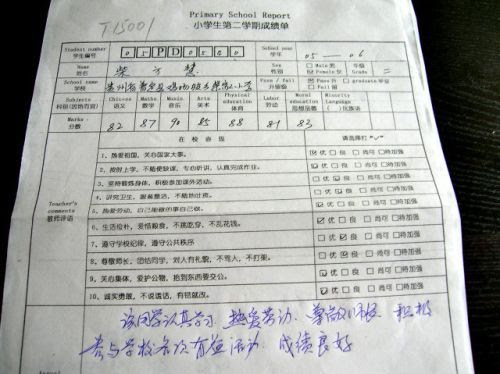 T1500
Primary School Report
小学生第二学期成绩单
Student number 学生编号 05PD0560 School year 学年 05 — 06
Name 姓名 Sex 性别 □Male 男 Female 女 年级 Grade 二
School name 学校 Pass / Fail 升留级 Pass 升 graduate 毕业 □Fail 留
Subjects 科目(因地而宜) Chinese 语文 Maths 数学 Music 音乐 Arts 美术 Physical education 体育 Labor 劳动 Moral education 思想品德 Minority Language ( )民族语
Marks 分数 82 87 90 85 88 81 83
在校表现 请选择打"✓"
1、热爱祖国，关心国家大事。 优 □良 □尚可 □待加强
2、按时上学，不随便缺课，专心听讲，认真完成作业。 □优 良 □尚可 □待加强
3、坚持锻炼身体，积极参加课外活动。 优 □良 □尚可 □待加强
4、讲究卫生，服装整洁，不随地吐痰。 优 □良 □尚可 □待加强
5、热爱劳动，自己能做的事自己做。 优 □良 □尚可 □待加强
Teacher's comments 教师评语
6、生活俭朴，爱惜粮食，不挑吃穿，不乱花钱。 优 □良 □尚可 □待加强
7、遵守学校纪律，遵守公共秩序 □优 良 □尚可 □待加强
8、尊敬师长，团结同学，对人有礼貌，不骂人，不打架。 优 □良 □尚可 □待加强
9、关心集体，爱护公物，拾到东西要交公。 优 □良 □尚可 □待加强
10、诚实勇敢，不说谎话，有错就改。 优 □良 □尚可 □待加强
该同学认真学习、热爱劳动、尊敬师长、积极
参与学校各项有益活动、成绩良好